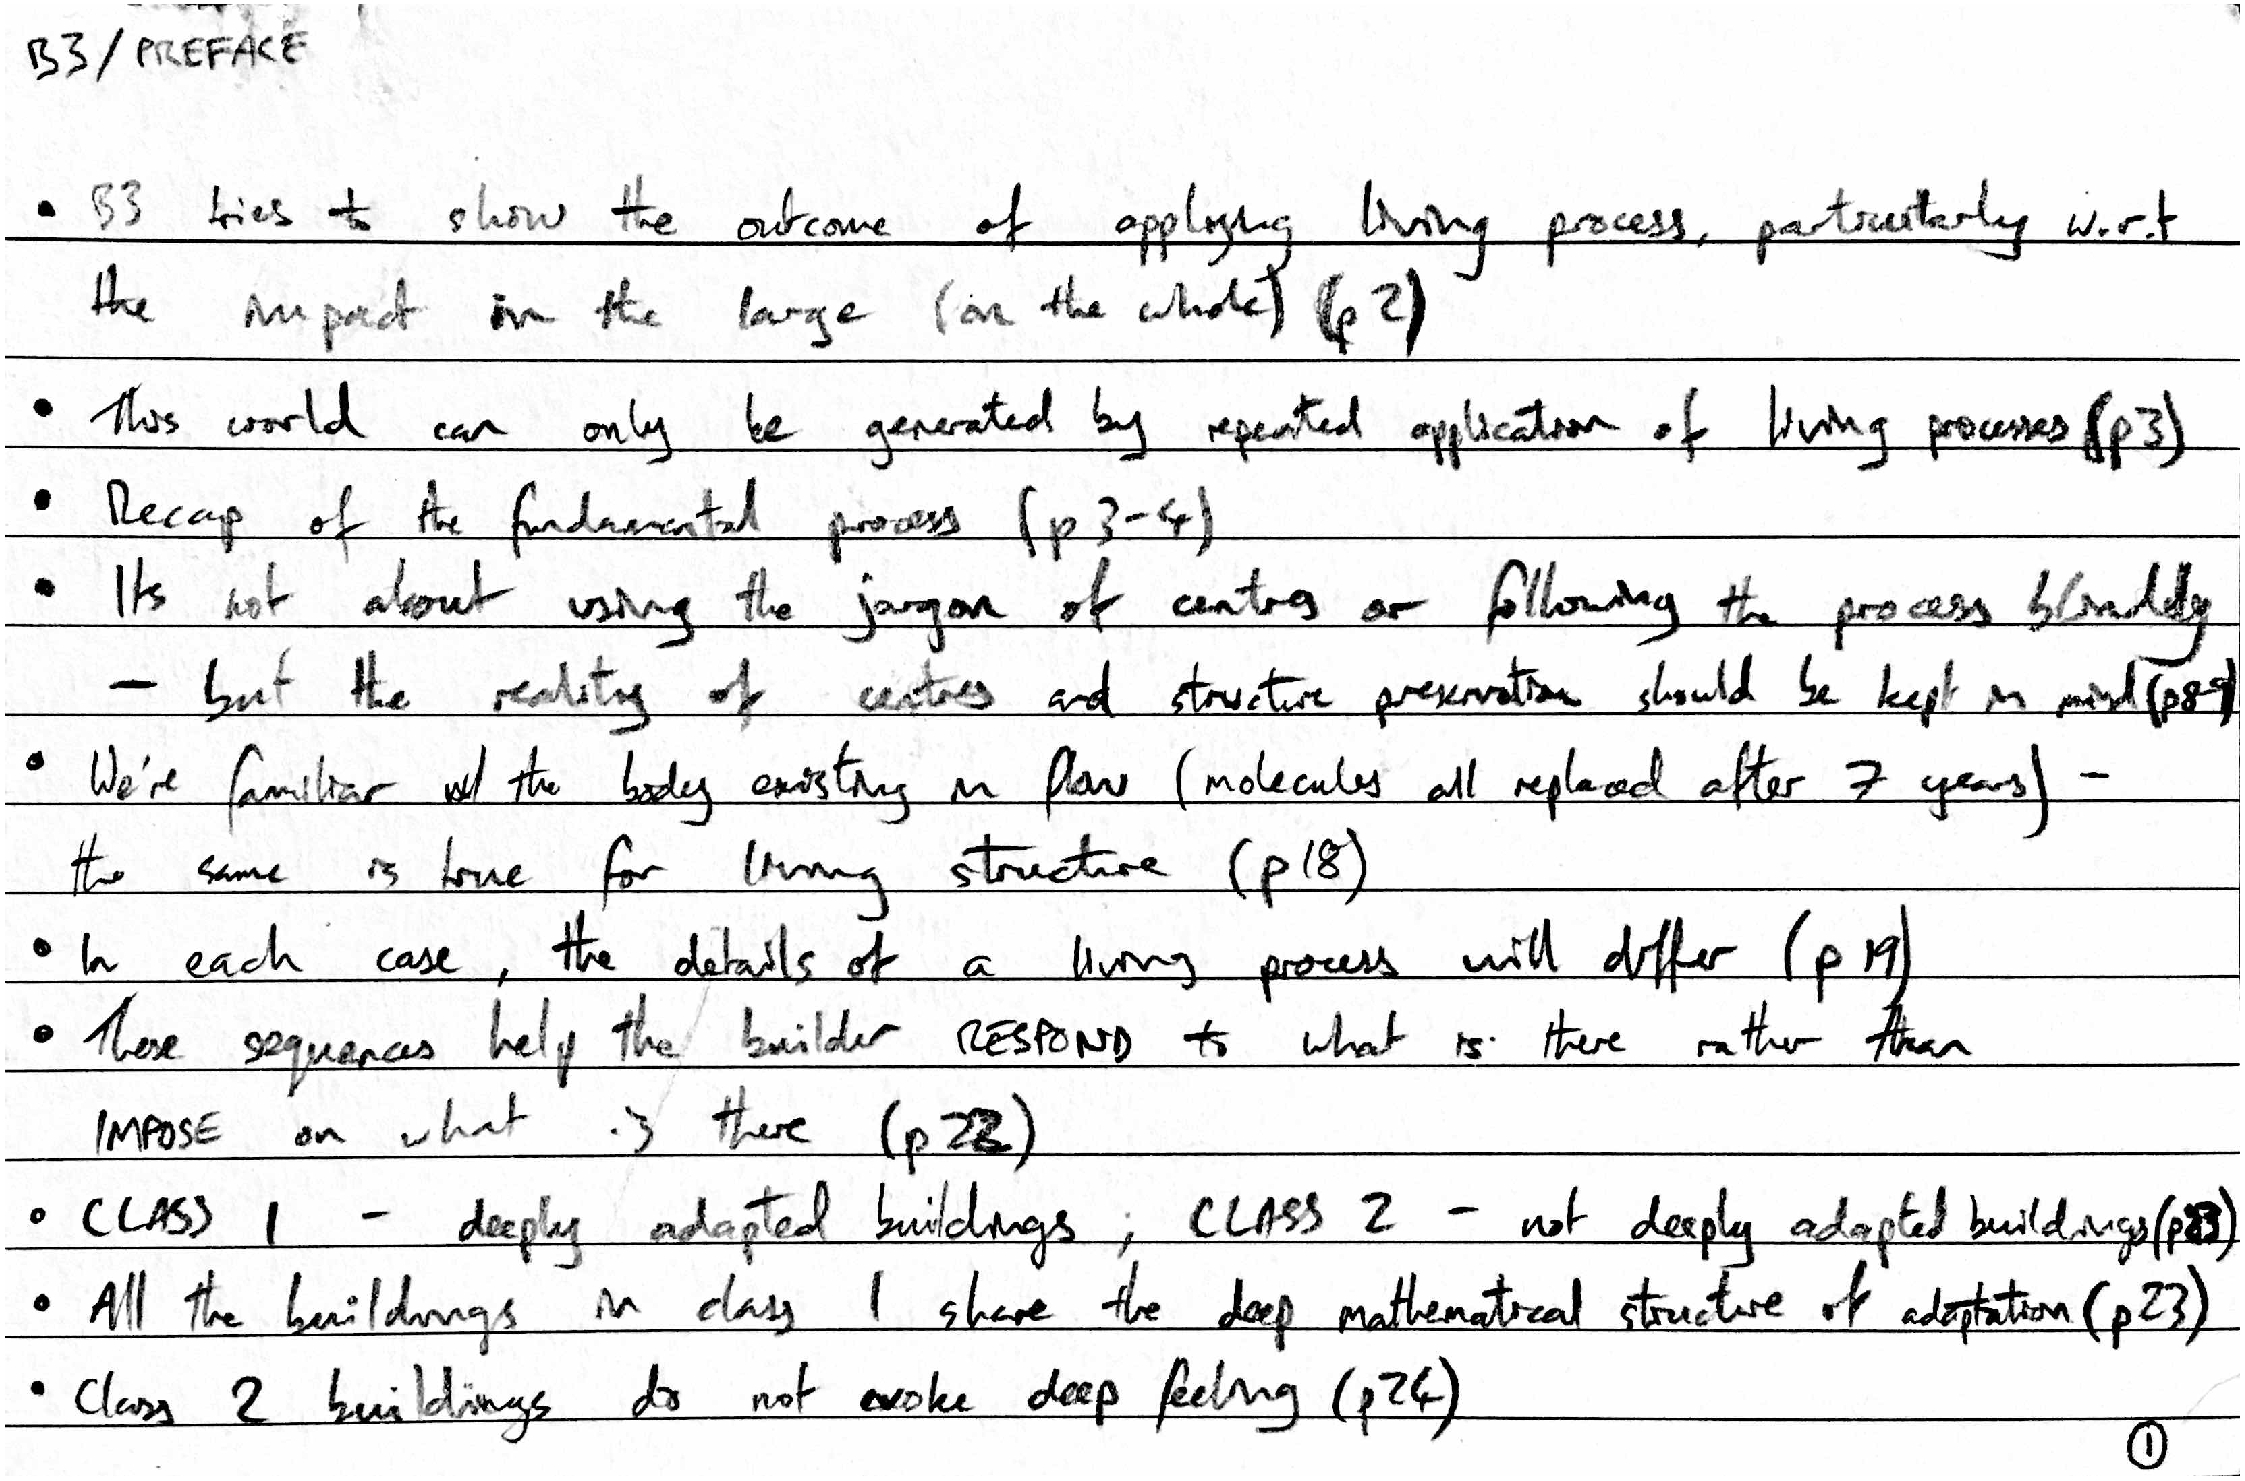 B3/PREFACE
• B3 tries to show the outcome of applying living process, particularly w.r.t
the impact in the large (on the whole) (p2)
• This world can only be generated by repeated application of living processes (p3)
• Recap of the fundamental process (p3-4)
• Its not about using the jargon of centres or following the process blindly
- but the reality of centres and structure preservation should be kept in mind (p8-9)
• We're familiar w/ the body existing in flow (molecules all replaced after 7 years) -
the same is true for living structure (p18)
• In each case, the details of a living process will differ (p19)
• These sequences help the builder RESPOND to what is there rather than
IMPOSE on what is there (p22)
• CLASS 1 - deeply adapted buildings; CLASS 2 - not deeply adapted buildings (p23)
• All the buildings in class 1 share the deep mathematical structure of adaptation (p23)
• Class 2 buildings do not evoke deep feeling (p24)
1